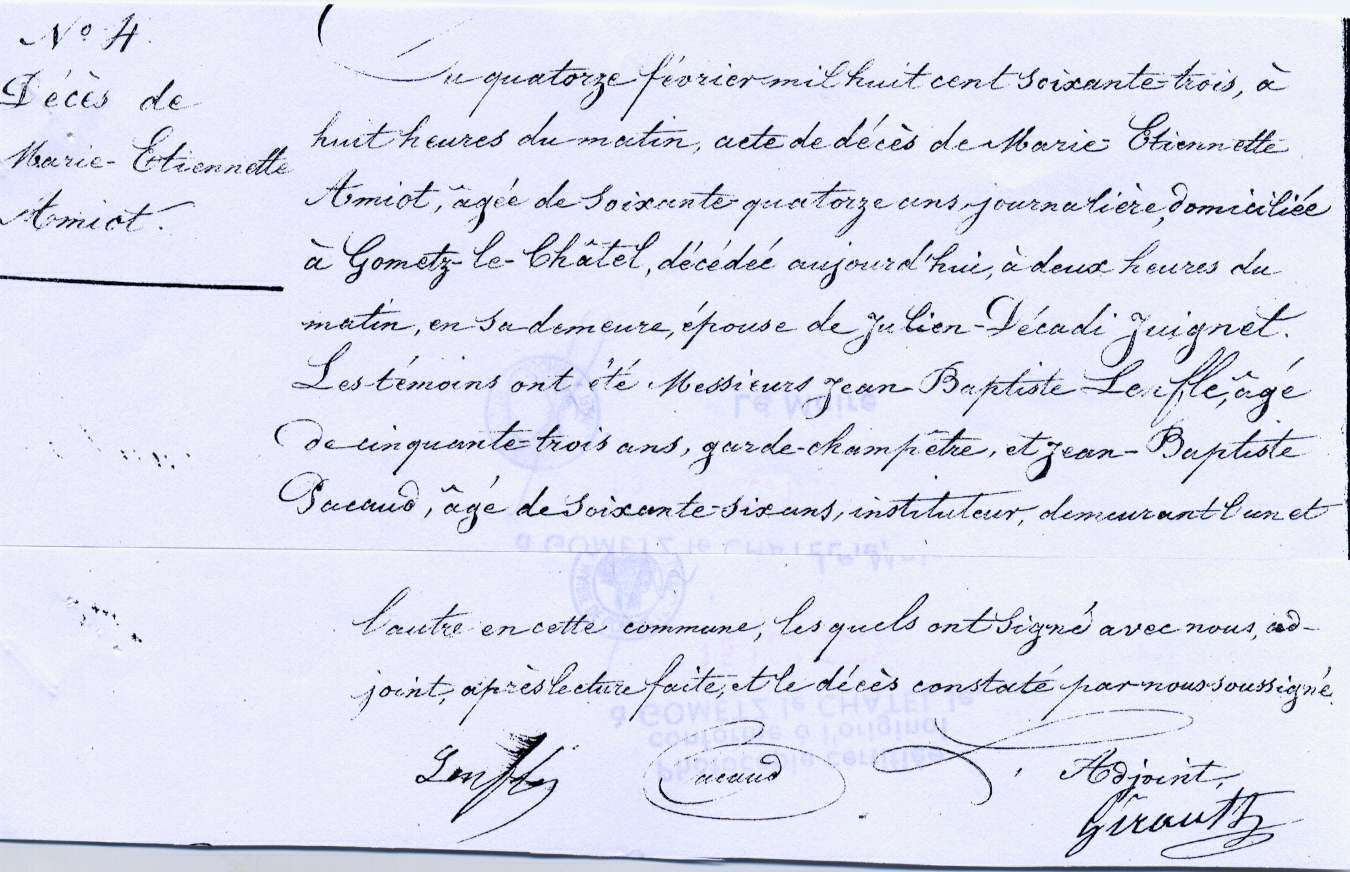 N° 4.
Décès de
Marie-Etiennette
Amiot.
Du quatorze février mil huit cent soixante-trois, à
huit heures du matin, acte de décès de Marie-Etiennette
Amiot, âgée de soixante-quatorze ans, journalière, domiciliée
à Gometz-le-Châtel, décédée aujourd'hui, à deux heures du
matin, en sa demeure, épouse de Julien-Décadi Juignet.
Les témoins ont été Messieurs Jean-Baptiste Lenflé, âgé
de cinquante-trois ans, garde-champêtre, et Jean-Baptiste
Pacaud, âgé de soixante-six ans, instituteur, demeurant l'un et
l'autre en cette commune, les quels ont signé avec nous, ad-
joint, après lecture faite, et le décès constaté par nous soussigné.
Lenflé Pacaud Adjoint,
Girault
Le Maire
à GOMETZ le CHATEL le,
Le Maire
à GOMETZ le CHATEL le
conforme à l'original
Photocopie certifiée